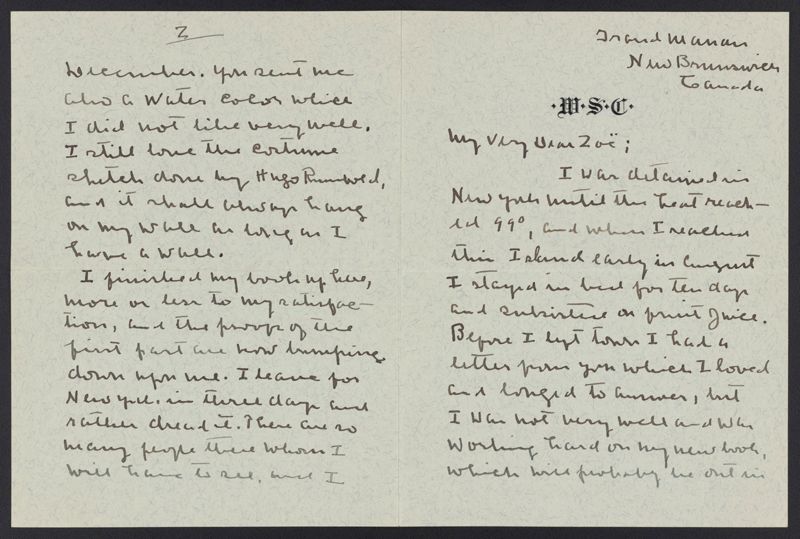 Grand Manan
New Brunswick
Canada
W·S·C·
My Very Dear Zoë;
I was detained in
New York until the heat reach-
ed 99°, and when I reached
this Island early in August
I stayed in bed for ten days
and subsisted on fruit juice.
Before I left town I had a
letter from you which I loved
and longed to answer, but
I was not very well and was
working hard on my new book,
which will probably be out in
2
December. You sent me
also a water color which
I did not like very well.
I still love the costume
sketch done by Hugo Rumbold,
and it shall always hang
on my wall as long as I
have a wall.
I finished my book up here,
more or less to my satisfac-
tion, and the proofs of the
first part are now bumping
down upon me. I leave for
New York in three days and
rather dread it. There are so
many people there whom I
will have to see, and I